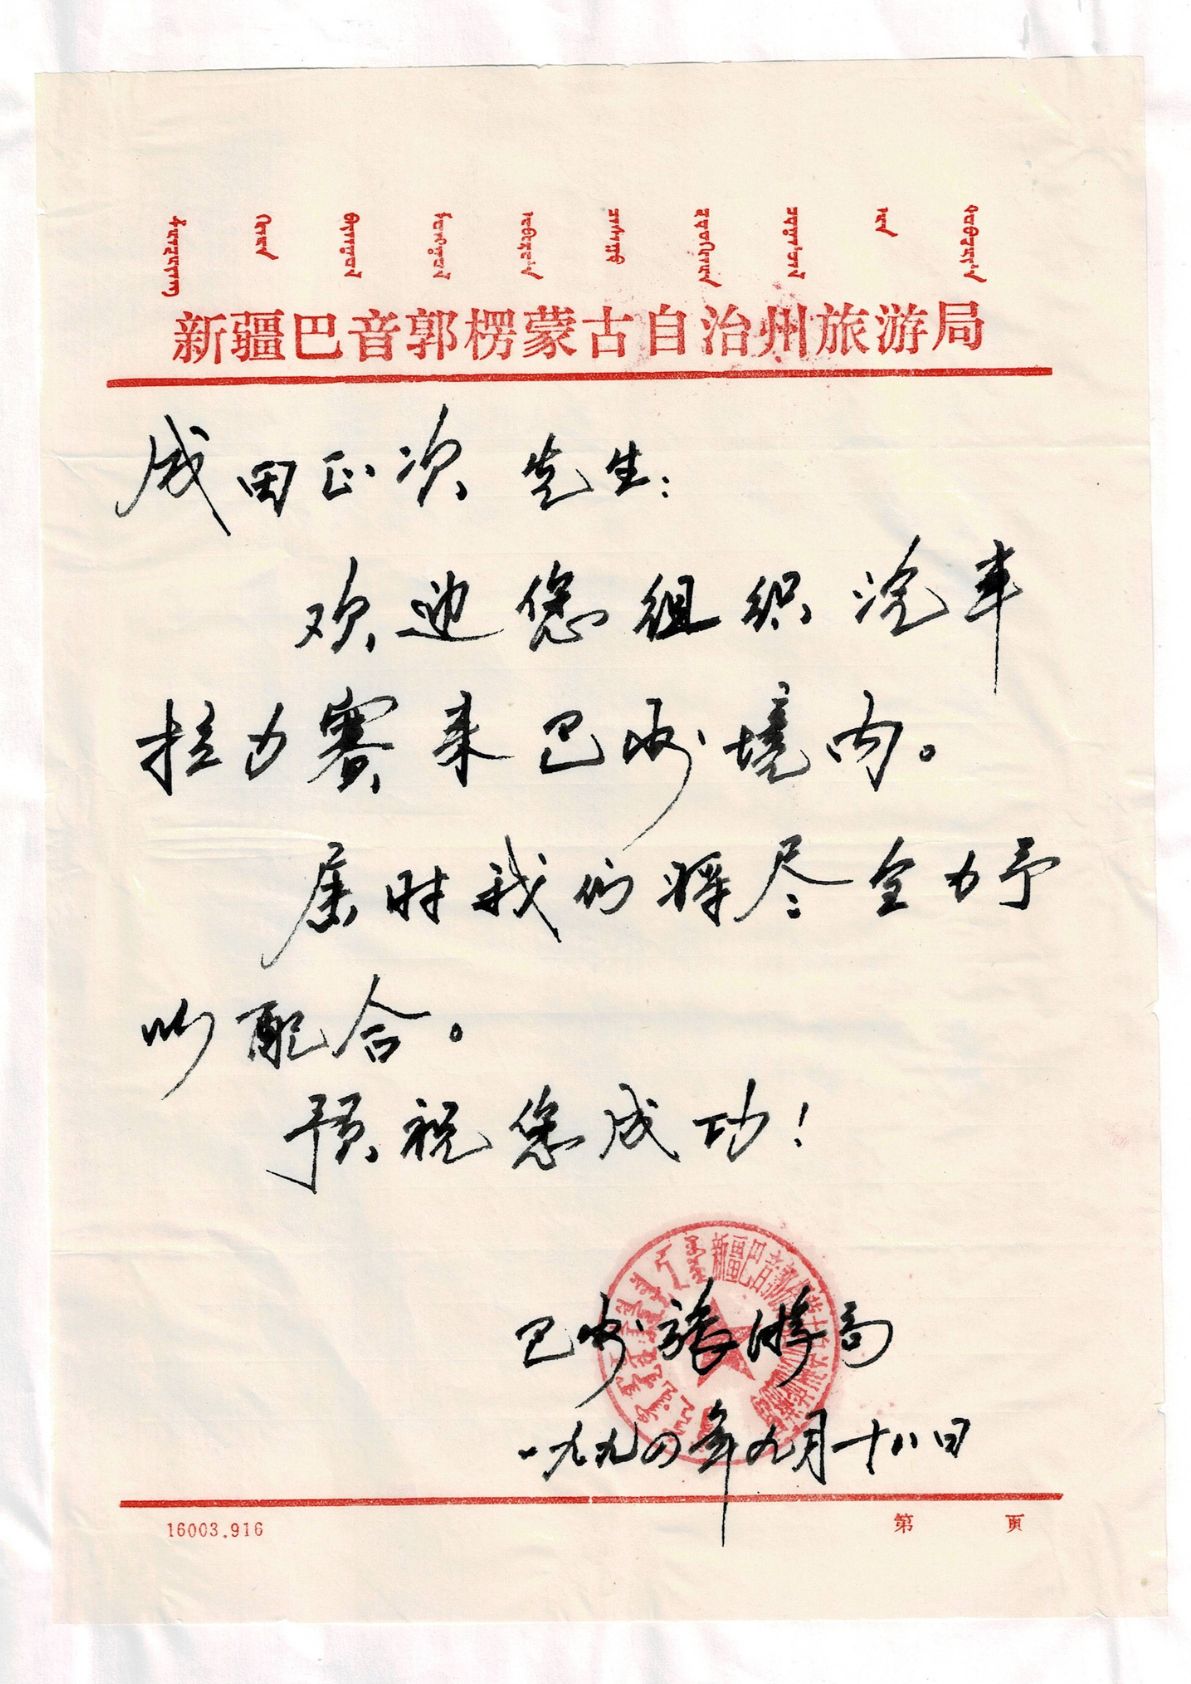 新疆巴音郭楞蒙古自治州旅游局
成田正次 先生:
欢迎您组织汽车
拉力赛来巴州境内。
届时我们将尽全力予
以配合。
预祝您成功!
巴州旅游局
一九九四年九月十八日
16003.916
第 页